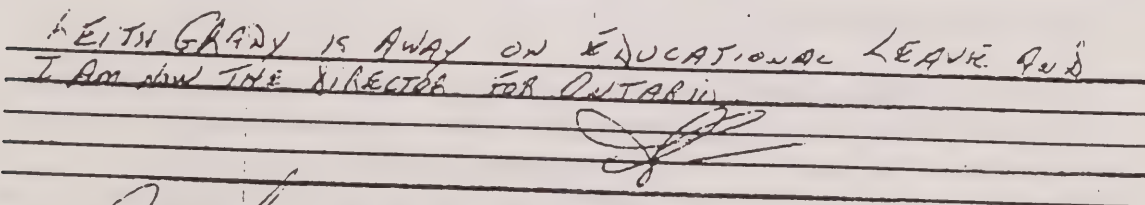 KEITH GRADY IS AWAY ON EDUCATIONAL LEAVE AND
I AM NOW THE DIRECTOR FOR ONTARIO.